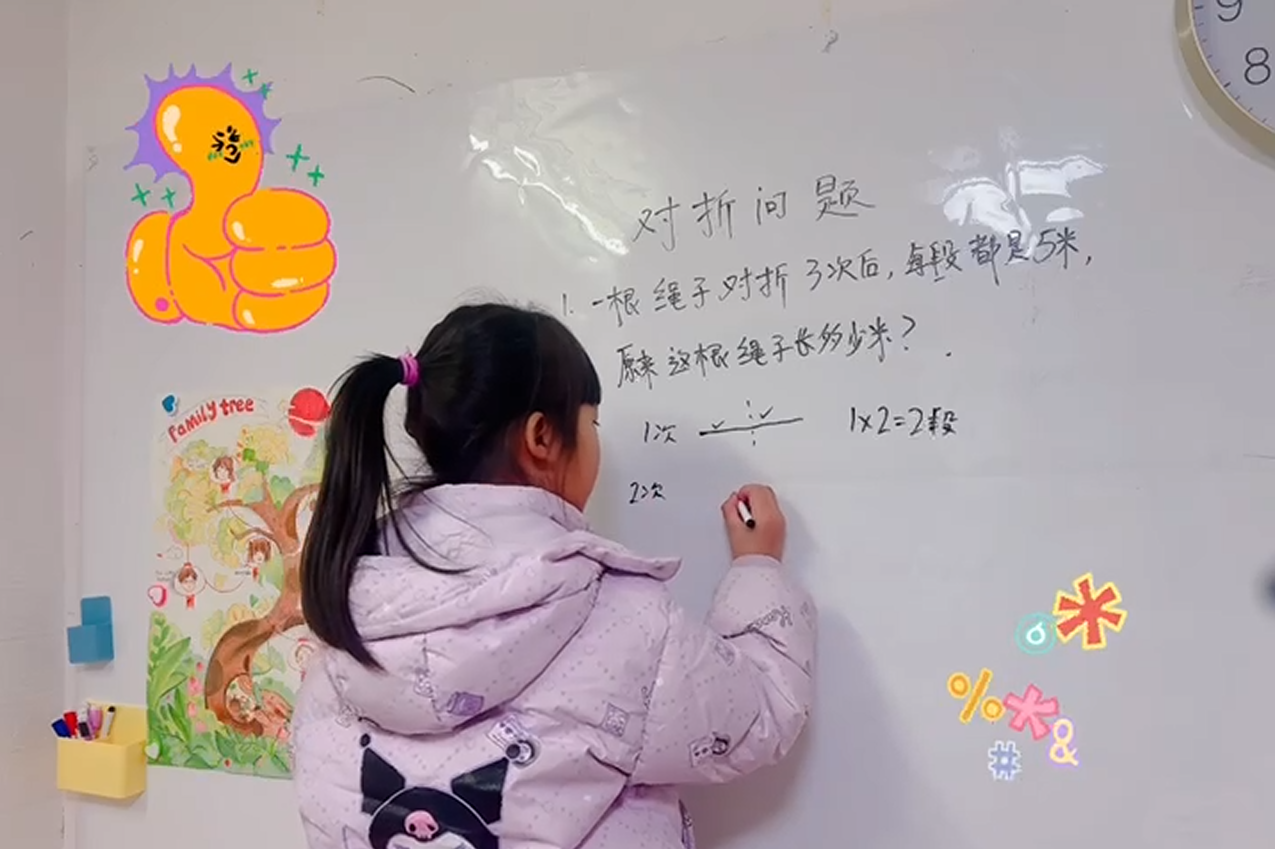 9
8
对折问题
1. 一根绳子对折3次后,每段都是5米,
原来这根绳子长多少米?
1次 1×2=2段
2次
Family tree
%
*
*
&
#